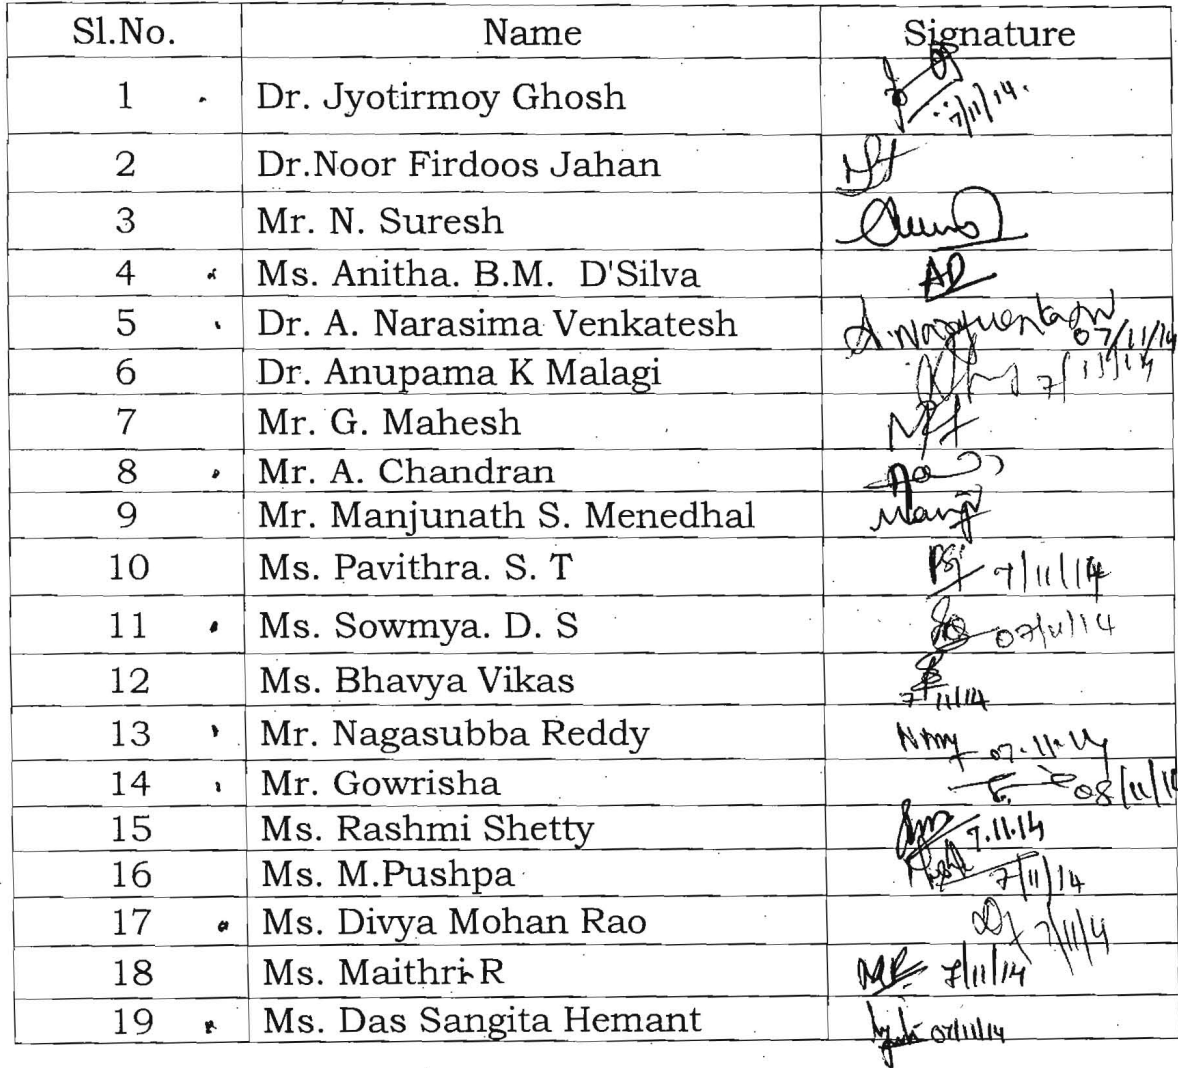 Sl.No. Name Signature
1 Dr. Jyotirmoy Ghosh 7/11/14.
2 Dr.Noor Firdoos Jahan
3 Mr. N. Suresh
4 Ms. Anitha. B.M. D'Silva AD
5 Dr. A. Narasima Venkatesh 07/11/14
6 Dr. Anupama K Malagi 7/11/14
7 Mr. G. Mahesh
8 Mr. A. Chandran
9 Mr. Manjunath S. Menedhal
10 Ms. Pavithra. S. T 7/11/14
11 Ms. Sowmya. D. S 07/11/14
12 Ms. Bhavya Vikas 7/11/14
13 Mr. Nagasubba Reddy 07.11.14
14 Mr. Gowrisha 08/11/
15 Ms. Rashmi Shetty 7.11.14
16 Ms. M.Pushpa 7/11/14
17 Ms. Divya Mohan Rao 7/11/14
18 Ms. Maithri R 7/11/14
19 Ms. Das Sangita Hemant 07/11/14